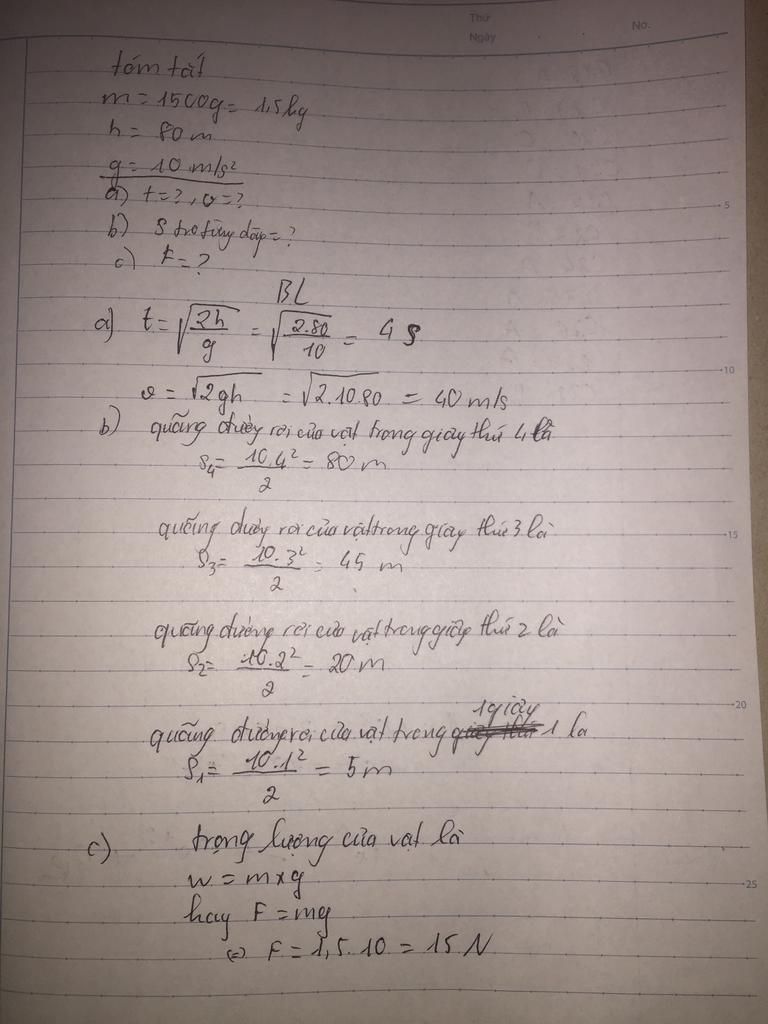 Thứ
Ngày
No.
tóm tắt
m = 1500g = 1,5kg
h = 80 m
g = 10 m/s²
a) t=?, v=?
b) S trg từng =?
c) F = ?
BL
a) t = √(2h/g) = √(2.80/10) = 4 s
v = √2gh = √2.10.80 = 40 m/s
b) quãng đường rơi của vật trong giây thứ 4 là
S₄ = 10.4²/2 = 80 m
quãng đường rơi của vật trong giây thứ 3 là
S₃ = 10.3²/2 = 45 m
quãng đường rơi của vật trong giây thứ 2 là
S₂ = 10.2²/2 = 20 m
1 giây
quãng đường rơi của vật trong 1 là
S₁ = 10.1²/2 = 5 m
c) trọng lượng của vật là
w = m x g
hay F = mg
⇔ F = 1,5.10 = 15 N
5
10
15
20
25